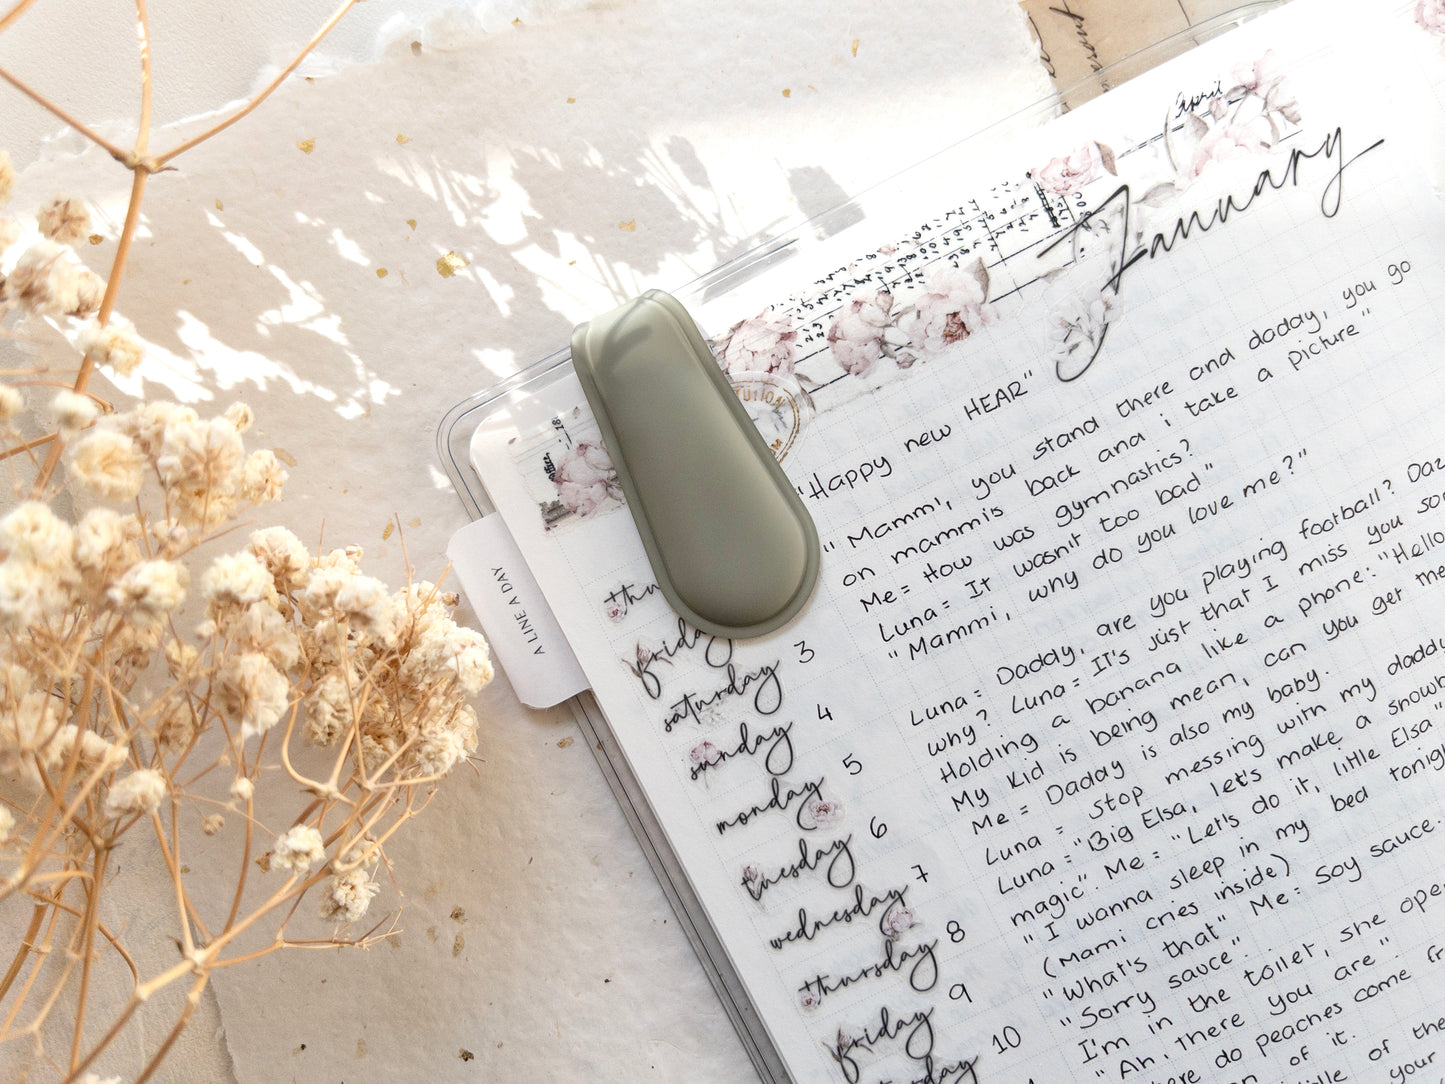 April
January
TUTION
A LINE A DAY
"Happy new HEAR"
"Mammi, you stand there and daddy, you go
on mammi's back and i take a picture"
Me = How was gymnastics?
Luna = It wasn't too bad"
"Mammi, why do you love me?"
thu
friday
saturday 3
sunday 4
monday 5
tuesday 6
wednesday 7
thursday 8
friday 9
10
Luna = Daddy, are you playing football? Daz
why? Luna = It's just that I miss you so
Holding a banana like a phone: "Hello
My kid is being mean, can you get the
Me = Daddy is also my baby.
Luna = stop messing with my daddy
Luna = "Big Elsa, let's make a snow
magic". Me = "Let's do it, little Elsa"
"I wanna sleep in my bed tonigh
(Mami cries inside)
"What's that" Me = Soy sauce.
"Sorry sauce".
I'm in the toilet, she ope
"Ah, there you are".
ere do peaches come fr
on of it.
of the
your